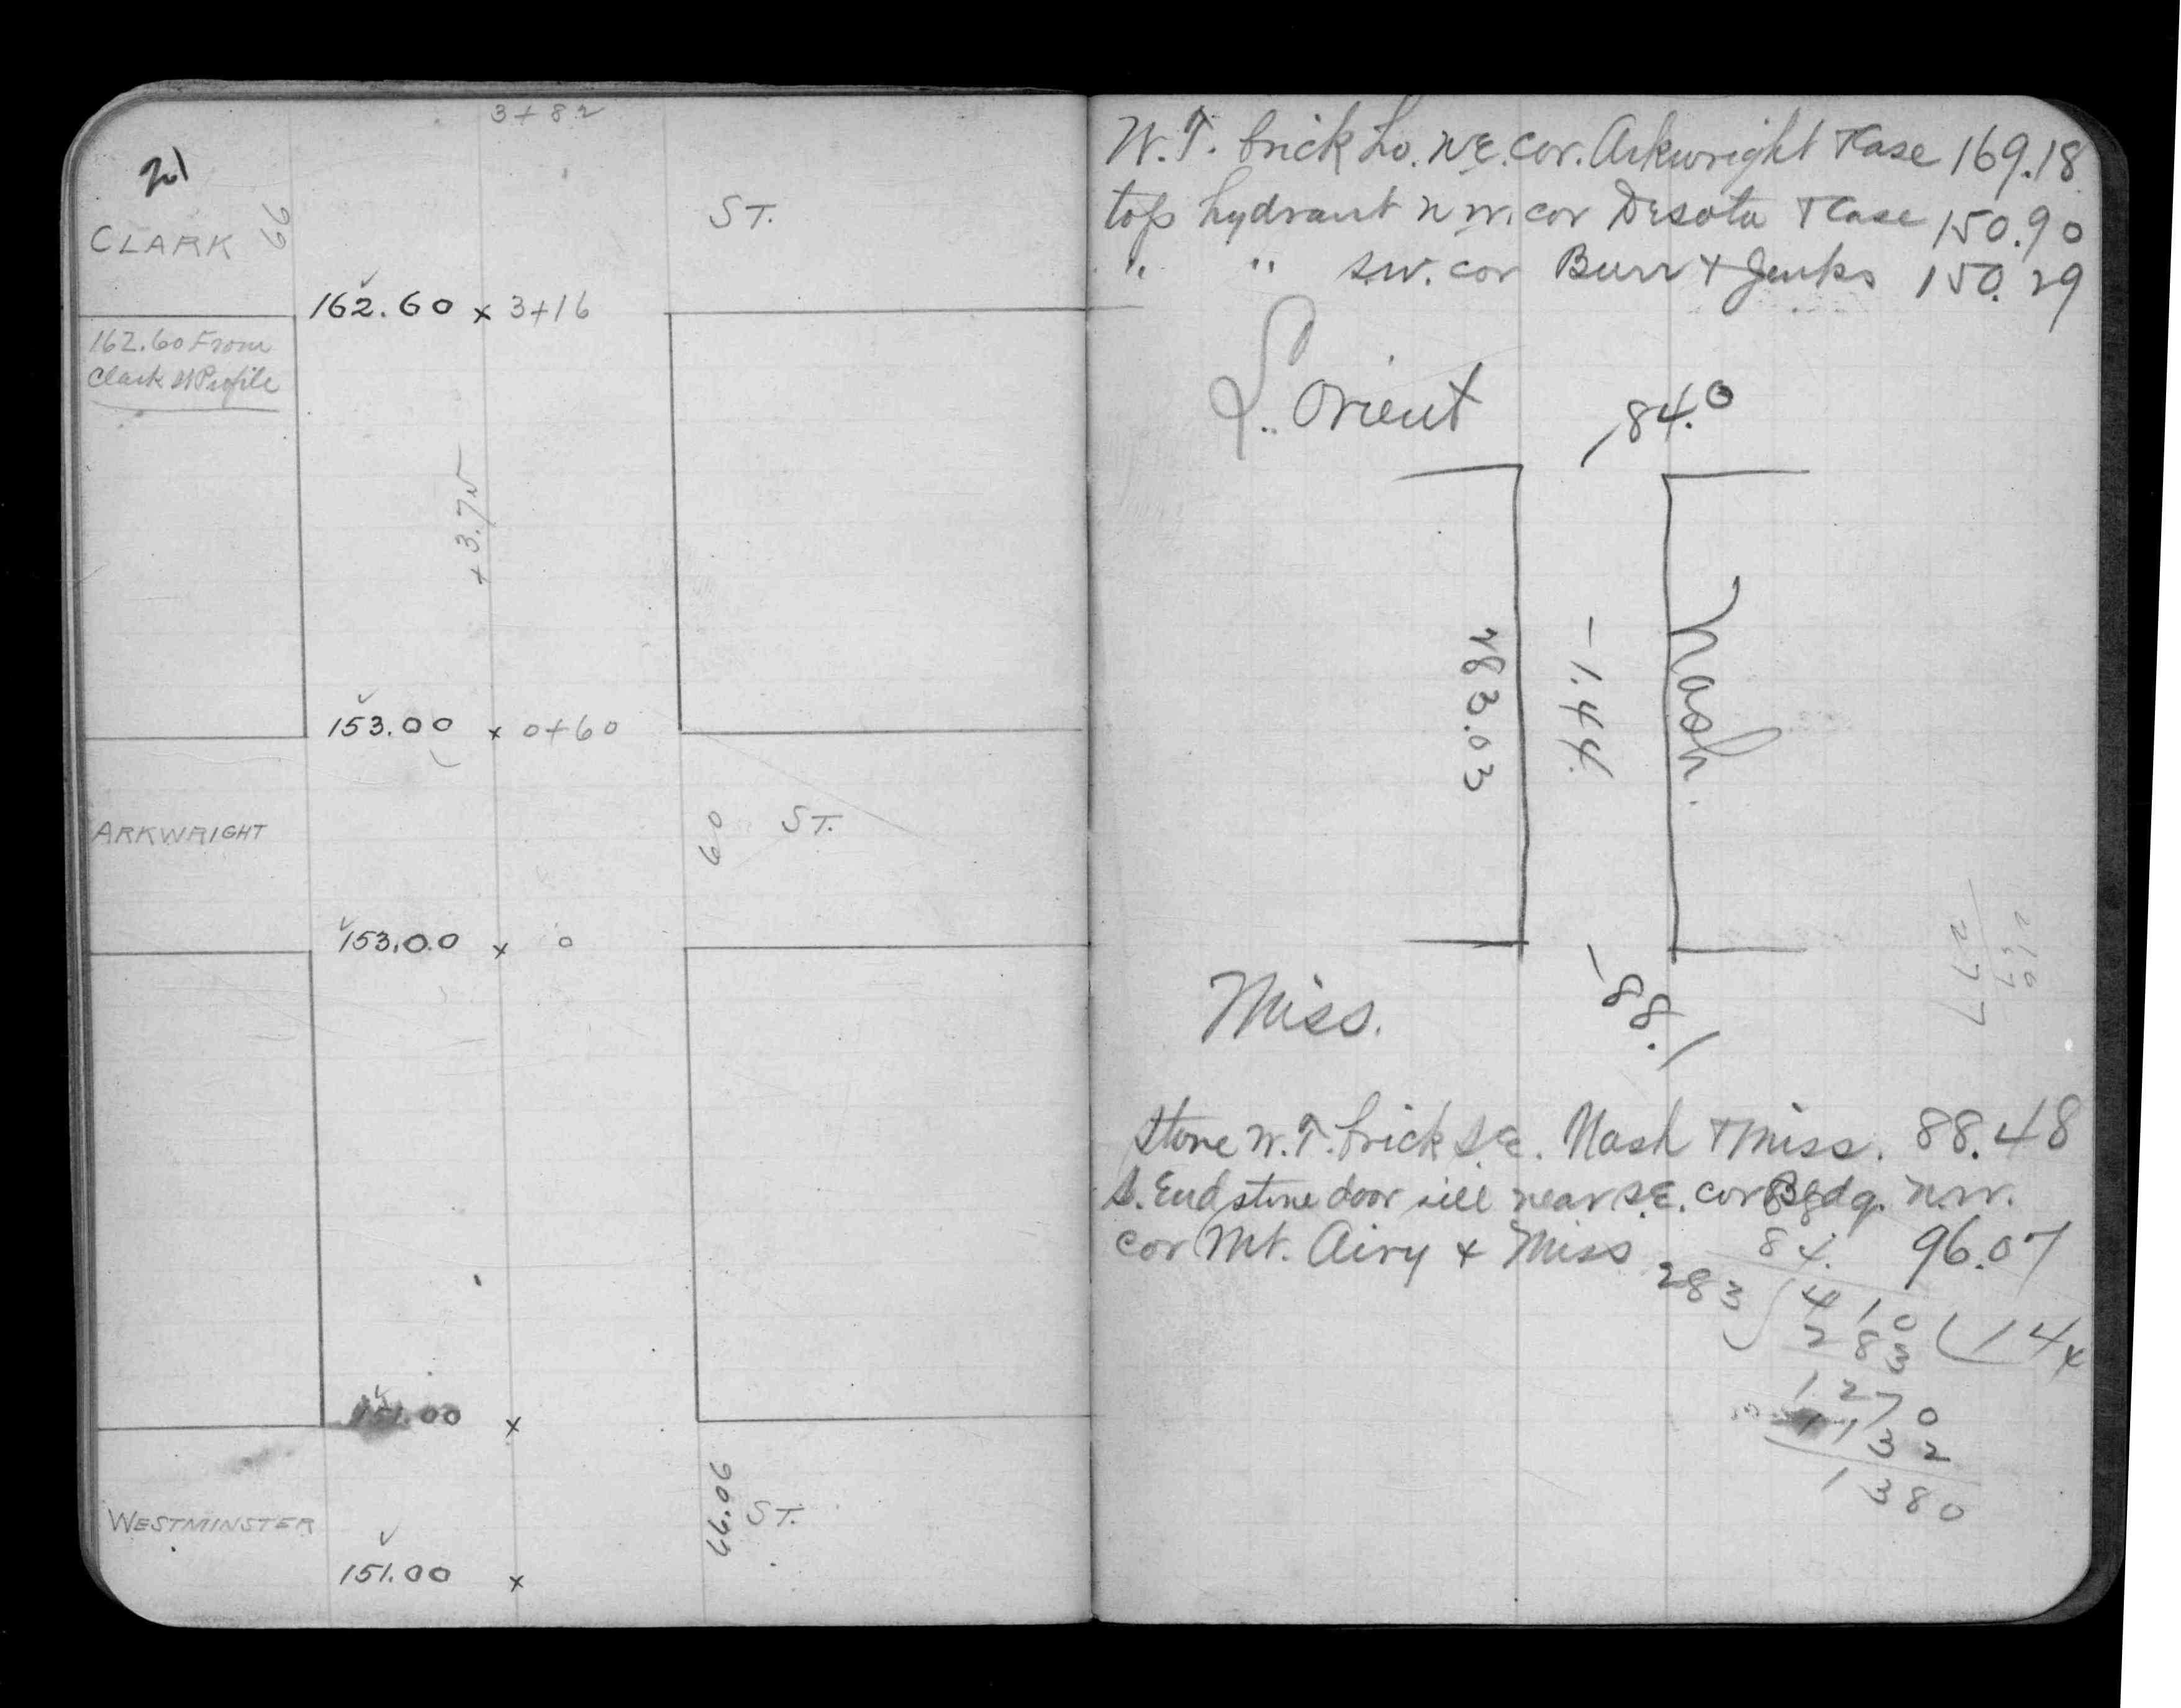 3+82
21
CLARK 66 ST.
162.60 x 3+16
162.60 From
Clark St Profile
+3.75
153.00 x 0+60
ARKWRIGHT 60 ST.
153.00 x 0
151.00 x
WESTMINSTER 66.06 ST.
151.00 x
W.T. brick Ho. NE. cor. Arkwright + Case 169.18
top hydrant N.W. cor Desota + Case 150.90
" " S.W. cor Burr + Jenks 150.29
L. Orient
84.0
283.03
-1.44
Nash.
Miss.
88.1
277
Stone W.T. brick S.E. Nash + Miss. 88.48
S. End stone door sill near S.E. cor Bldg. N.W.
cor Mt. Airy + Miss 96.07
84.
283 410 (144
283
1270
1132
1380